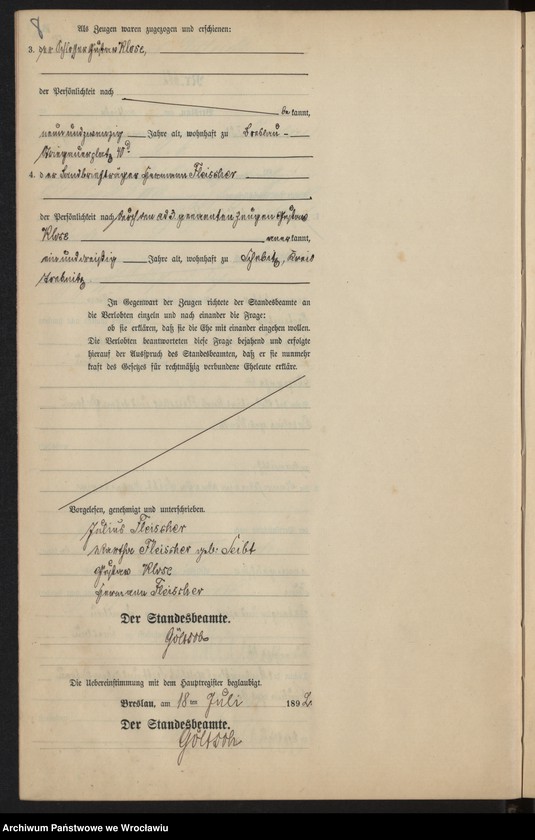 8
Als Zeugen waren zugezogen und erschienen:
3. der Schlosser Gustav Klose,
der Persönlichkeit nach
be kannt,
neunundzwanzig Jahre alt, wohnhaft zu Breslau -
Striegauerplatz
4. der Landbriefträger Hermann Fleischer
der Persönlichkeit nach durch den Zeugen Gustav
Klose anerkannt,
einunddreißig Jahre alt, wohnhaft zu Schebitz, Kreis
Trebnitz
In Gegenwart der Zeugen richtete der Standesbeamte an
die Verlobten einzeln und nach einander die Frage:
ob sie erklären, daß sie die Ehe mit einander eingehen wollen.
Die Verlobten beantworteten diese Frage bejahend und erfolgte
hierauf der Ausspruch des Standesbeamten, daß er sie nunmehr
kraft des Gesetzes für rechtmäßig verbundene Eheleute erkläre.
Vorgelesen, genehmigt und unterschrieben.
Julius Fleischer
Martha Fleischer geb. Seibt
Gustav Klose
Hermann Fleischer
Der Standesbeamte.
Die Uebereinstimmung mit dem Hauptregister beglaubigt.
Breslau, am 18 ten Juli 1892
Der Standesbeamte.
Archiwum Państwowe we Wrocławiu